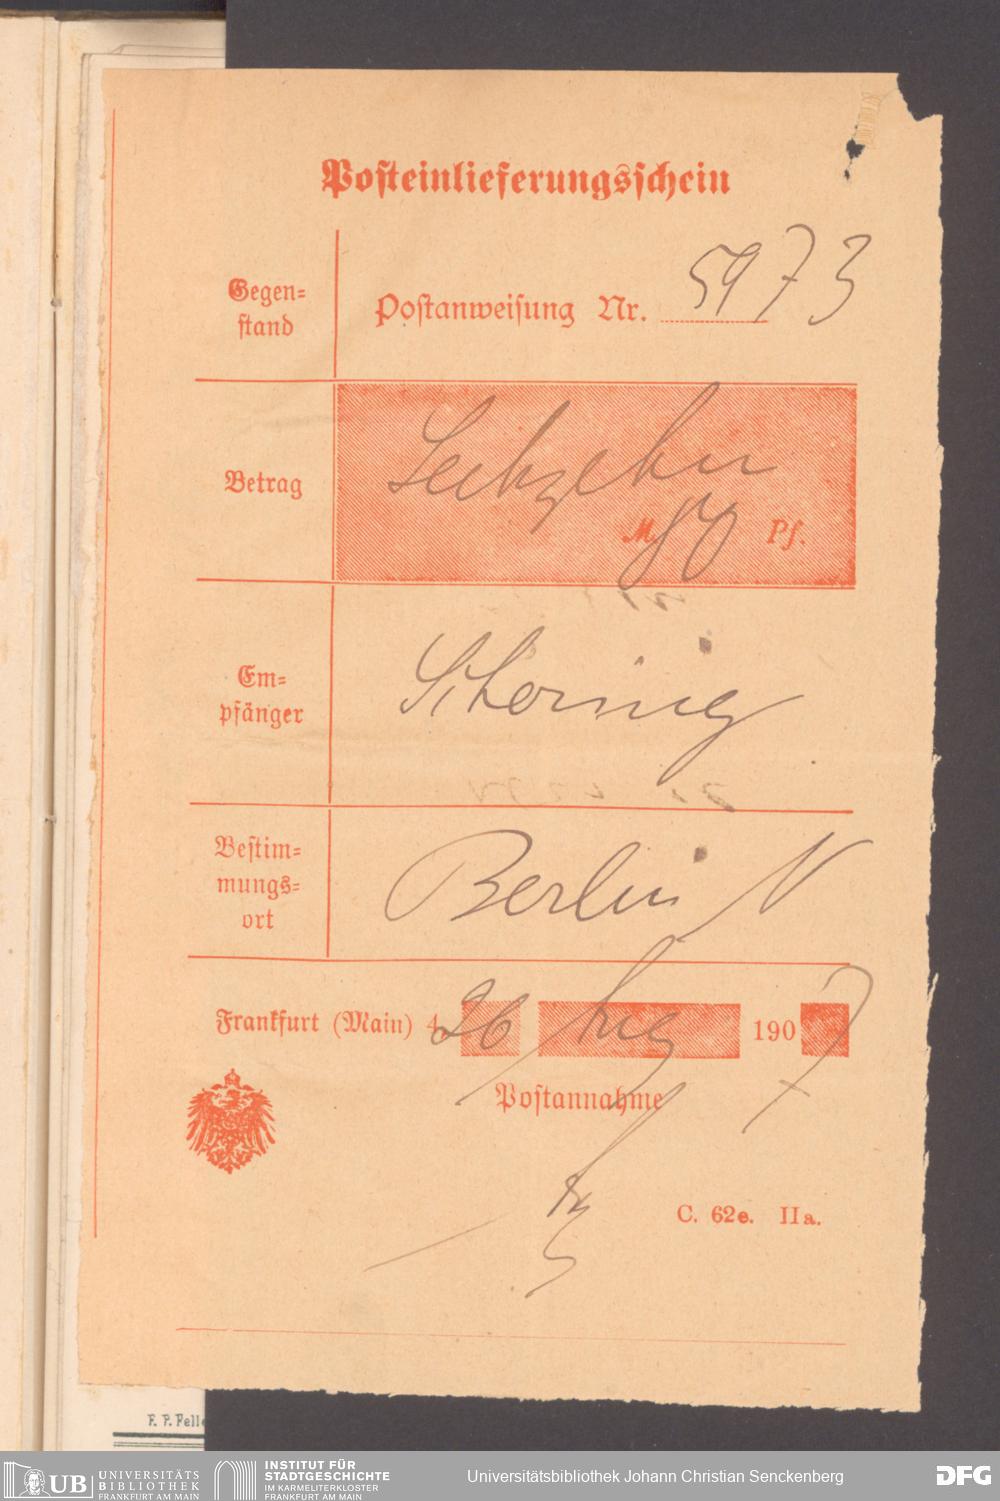 Posteinlieferungsschein
Gegen=
stand
Postanweisung Nr. 5973
Betrag
Sechzehn
M. 80 Pf.
Em=
pfänger
Bestim=
mungs=
ort
Berlin N
Frankfurt (Main) 4, 26 Aug 1907
Postannahme
C. 62e. IIa.
F. P. Felle
UB UNIVERSITÄTS
BIBLIOTHEK
FRANKFURT AM MAIN
INSTITUT FÜR
STADTGESCHICHTE
IM KARMELITERKLOSTER
FRANKFURT AM MAIN
Universitätsbibliothek Johann Christian Senckenberg
DFG